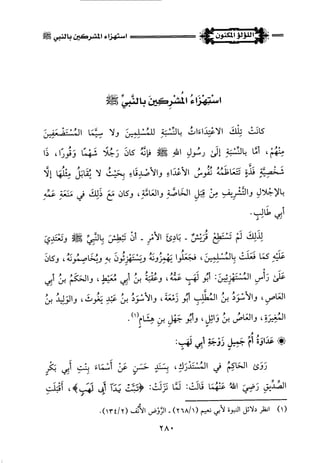 اللؤلؤ المكنون
استهزاء المشركين بالنبي ﷺ
اسْتِهْزَاءُ الْمُشْرِكِينَ بِالنَّبِيِّ ﷺ
كَانَتْ تِلْكَ الاعْتِدَاءَاتُ بِالنِّسْبَةِ لِلْمُسْلِمِينَ وَلا سِيَّمَا الْمُسْتَضْعَفِينَ
مِنْهُمْ، أمَّا بِالنِّسْبَةِ إلَى رَسُولِ اللهِ ﷺ فَإِنَّهُ كَانَ رَجُلًا شَهْمًا وَقُورًا، ذَا
شَخْصِيَّةٍ فَذَّةٍ تَتَعَاظَمُهُ نُفُوسُ الْأَعْدَاءِ وَالْأَصْدِقَاءِ بِحَيْثُ لا يُقَابَلُ مِثْلُهَا إلَّا
بِالإِجْلالِ وَالتَّشْرِيفِ مِنْ قِبَلِ الْخَاصَّةِ وَالْعَامَّةِ، وَكَانَ مَعَ ذَلِكَ فِي مَنَعَةِ عَمِّهِ
أَبِي طَالِبٍ.
لِذَلِكَ لَمْ تَسْتَطِعْ قُرَيْشٌ ـ بَادِئَ الْأَمْرِ ـ أَنْ تَبْطِشَ بِالنَّبِيِّ ﷺ وَتَعْتَدِيَ
عَلَيْهِ كَمَا فَعَلَتْ بِالْمُسْلِمِينَ، فَجَعَلُوا يَهْمِزُونَهُ وَيَسْتَهْزِئُونَ بِهِ وَيُخَاصِمُونَهُ، وَكَانَ
عَلَى رَأْسِ الْمُسْتَهْزِئِينَ: أَبُو لَهَبٍ عَمُّهُ، وَعُقْبَةُ بْنُ أَبِي مُعَيْطٍ، وَالْحَكَمُ بْنُ أَبِي
الْعَاصِ، وَالْأَسْوَدُ بْنُ الْمُطَّلِبِ أَبُو زَمْعَةَ، وَالْأَسْوَدُ بْنُ عَبْدِ يَغُوثَ، وَالْوَلِيدُ بْنُ
الْمُغِيرَةِ، وَالْعَاصُ بْنُ وَائِلٍ، وَأَبُو جَهْلِ بْنِ هِشَامٍ(١).
عَدَاوَةُ أُمِّ جَمِيلٍ زَوْجَةِ أَبِي لَهَبٍ:
رَوَى الْحَاكِمُ فِي الْمُسْتَدْرَكِ، بِسَنَدٍ حَسَنٍ عَنْ أَسْمَاءَ بِنْتِ أَبِي بَكْرٍ
الصِّدِّيقِ رَضِيَ اللهُ عَنْهُمَا قَالَتْ: لَمَّا نَزَلَتْ: ﴿تَبَّتْ يَدَآ أَبِى لَهَبٍ﴾، أَقْبَلَتِ
(١) انظر دلائل النبوة لأبي نعيم (٢٦٨/١) ـ الرَّوْض الأُنُف (١٣٤/٢).
٢٨٠